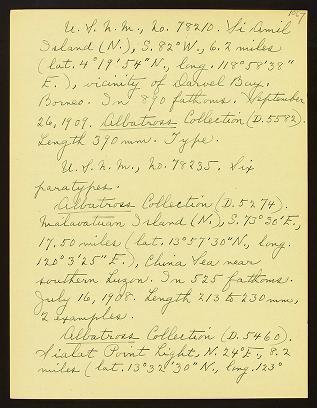 U.S.N.M., No. 78210. Si Amil
Island (N.), S. 82° W., 6.2 miles
(lat. 4° 19' 54" N., long. 118° 58' 38"
E.), vicinity of Darvel Bay.
Borneo. In 890 fathoms. September
26, 1909. Albatross Collection (D. 5582).
Length 390 mm. Type.
U.S.N.M., No. 78235. Six
paratypes.
Albatross Collection (D. 5274).
Malavatuan Island (N.), S. 73° 30' E.,
17.50 miles (lat. 13° 57' 30" N., long.
120° 3' 25" E.), China Sea near
southern Luzon. In 525 fathoms.
July 16, 1908. Length 213 to 230 mm,
2 examples.
Albatross Collection (D. 5460).
Sialat Point Light, N. 24° E., 8.2
miles (lat. 13° 32' 30" N., long. 123°